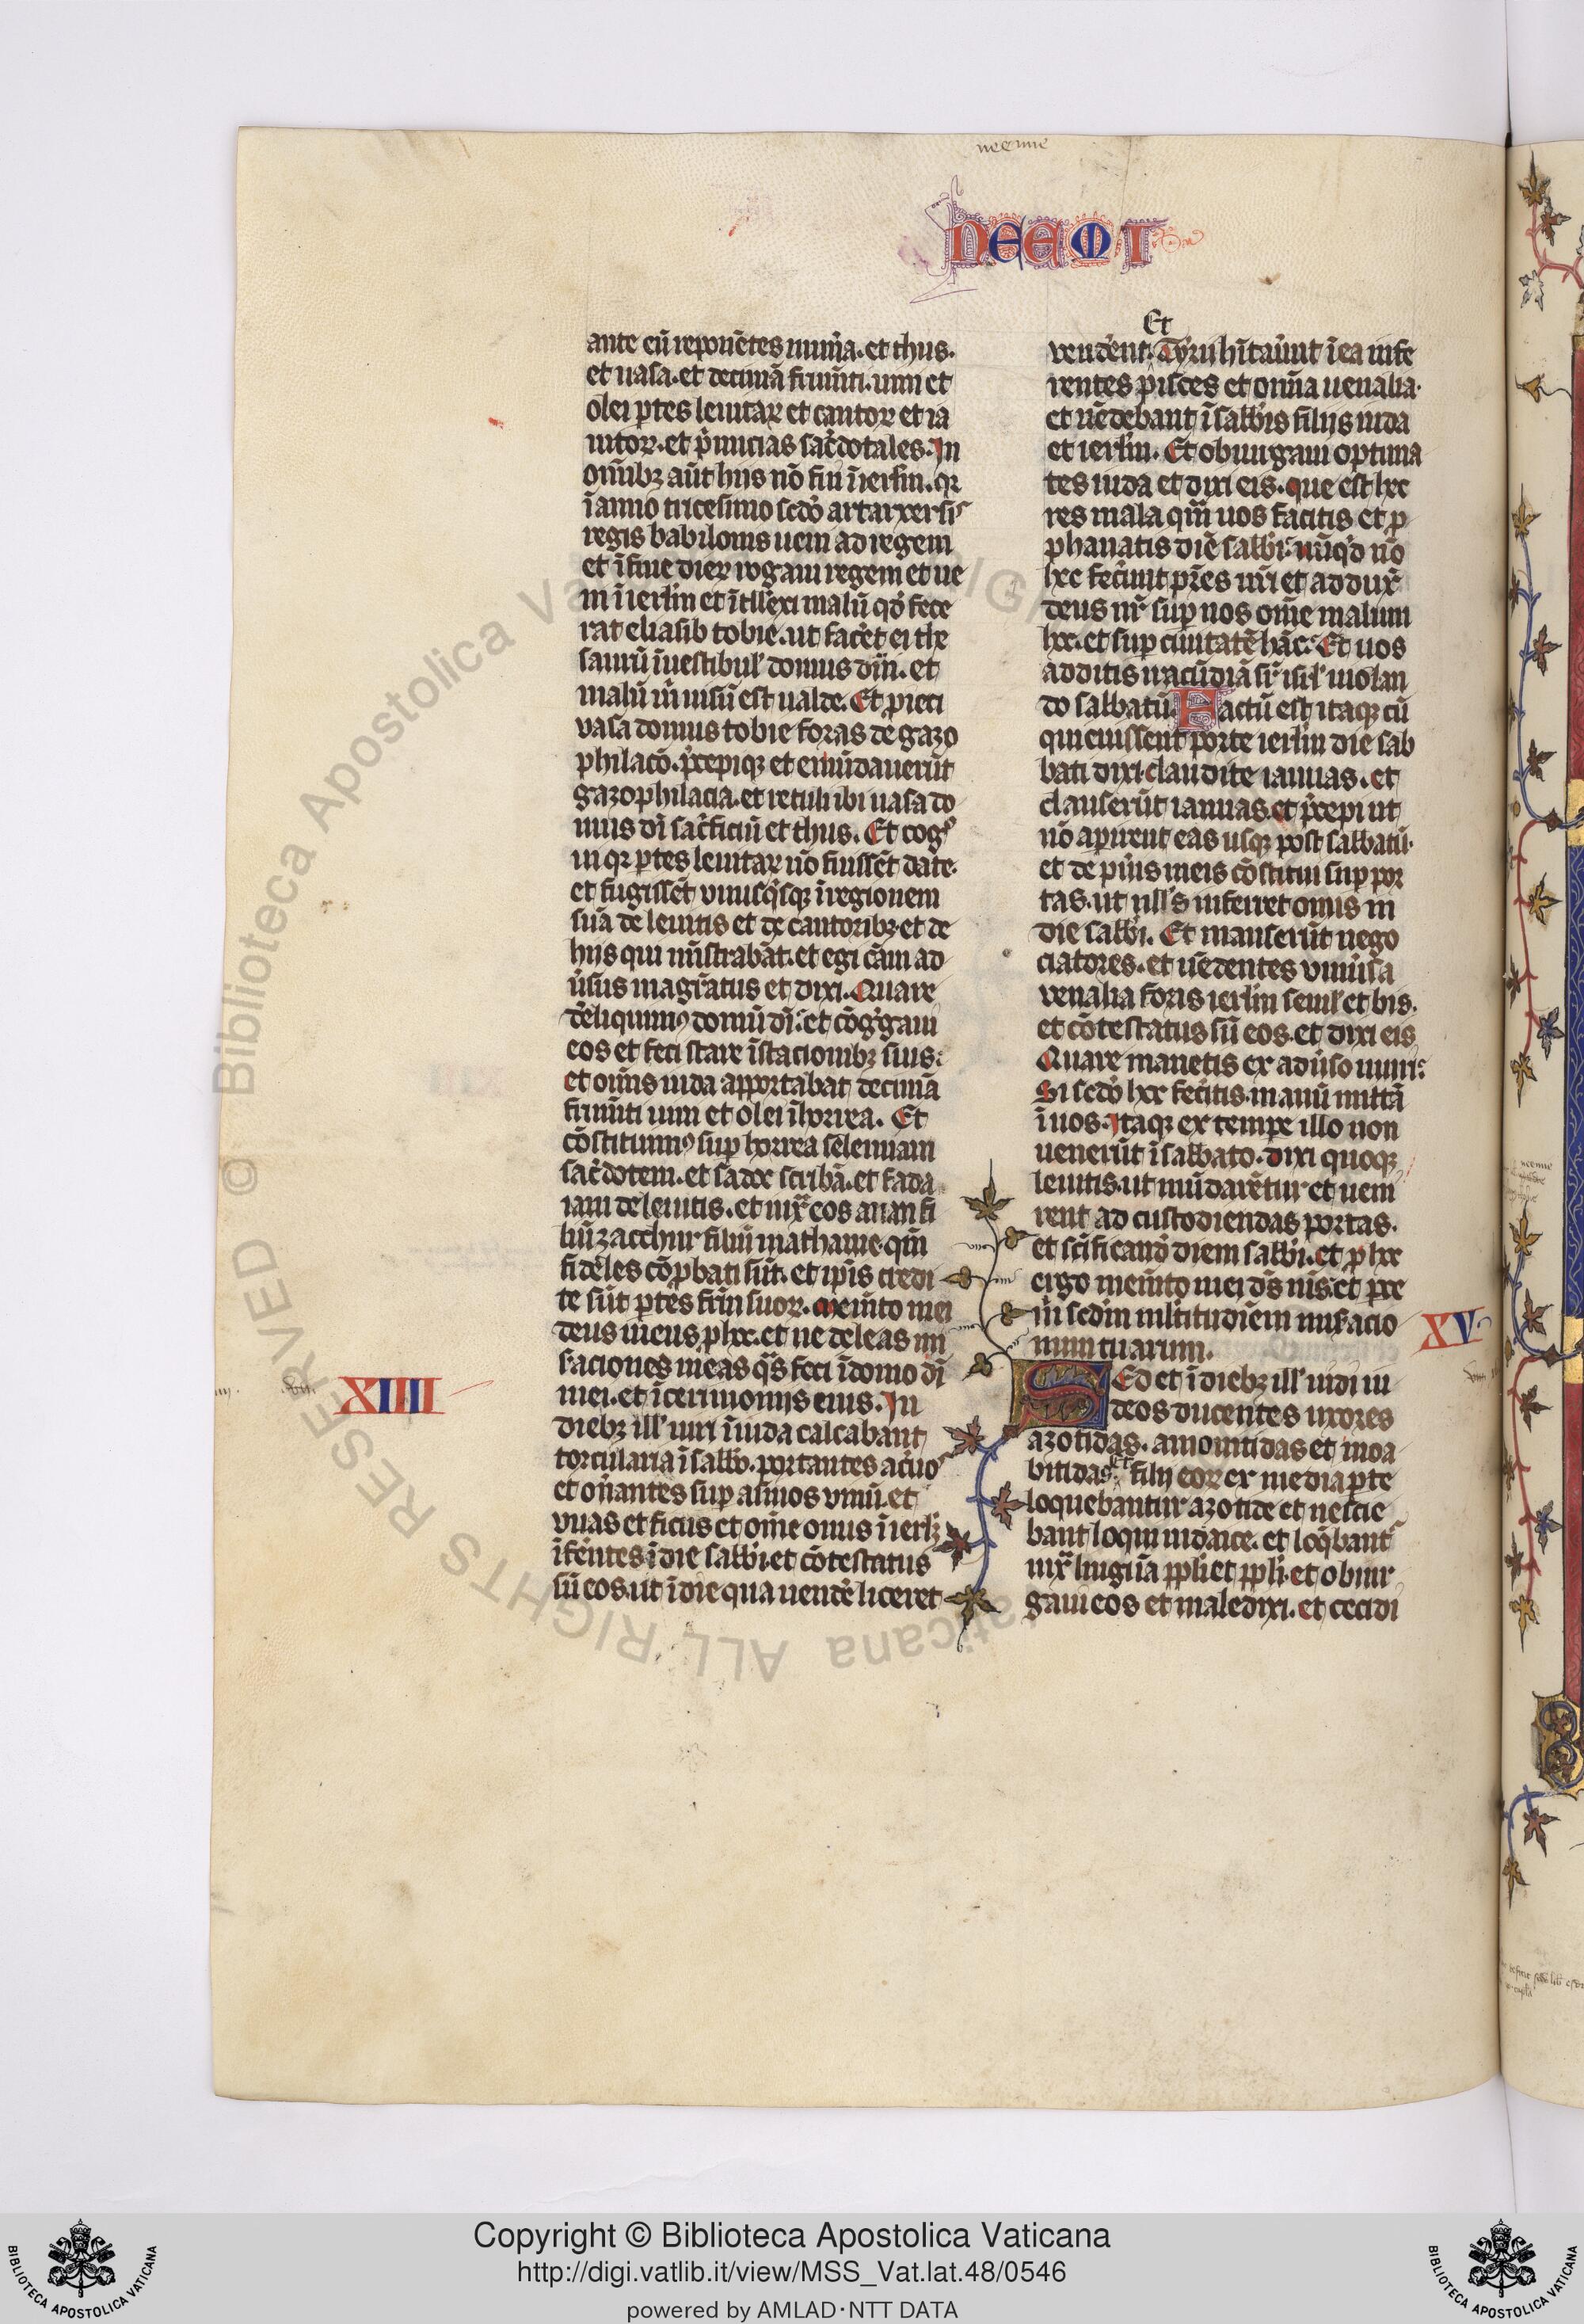 neemie
NEEMI
ante eū reponētes mun̄a. et thus.
et uasa. et decimā frumēti. uini et
olei ꝑtes leuitaꝝ et cantoꝝ et ia
nitoꝝ. et p̄micias sac̄dotales. In
om̄ibꝫ aūt hiis nō fui ī ierl̄m. qꝛ
ī anno tricesimo sc̄dō artarxersis
regis babilonis ueni ad regem
et ī fine dieꝝ rogaui regem et ue
ni ī ierl̄m et ītll̄exi malū qd̄ fece
rat eliasib tobie. ut fac̄et ei the
saurū ī uestibul' domus dn̄i. et
malū m̄ uisū est ualde. Et ꝓieci
vasa domus tobie foras de gazo
philacō. p̄cepiqꝫ et emūdauerūt
gazophilacia. et retuli ibi uasa do
mus dī sac̄ficiū et thus. Et cog
ui qꝛ ꝑtes leuitaꝝ nō fuissēt date.
et fugissēt vnusqͥsqꝫ ī regionem
suā de leuitis et de cantoribꝫ. et de
hiis qui mīstrabāt. et egi cām ad
ūsus magr̄atus et dixi. Quare
dēliquimꝰ domū dī. et cōgͤgaui
eos et feci stare ī stacionibꝫ suis:
et om̄is iuda apportabat decimā
frumēti uini et olei ī horrea. Et
cōstituimꝰ suꝑ horrea selemiam
sac̄dotem. et sadoc scribā. et fada
iam de leuitis. et iuxͣ eos anan fi
liū zacchur filiū mathanie. qm̄
fideles cōꝓbati sūt. et ip̄is credi
te sūt ꝑtes fr̄m suoꝝ. memēto mei
deus meus ꝓ hoc. et ne deleas mi
saciones meas qͣs feci ī domo dī
mei. et ī cerimoniis eius. In
XIIII
diebꝫ ill' uidi ī iuda calcabant
torcularia ī sabb̄o. portantes aceruos
et on̄antes suꝑ asinos vinū. et
vuas et ficus et om̄e onus ī ierl̄m
īferētes ī die sabb̄i. et cōtestatus
sū eos. ut ī die qua uendē liceret
Et
venderent. Tyrii hītaūnt ī ea infe
rentes pisces et omīa uenalia.
et uēdebant ī sabb̄is filiis iuda
et ierl̄m. Et obiurgaui optima
tes iuda et dixi eis. que est hec
res mala qm̄ uos facitis et ꝓ
phanatis diē sabb̄i: nūqͥd nō
hec fec̄unt pr̄es nr̄i et adduxͭ
deus nr̄ suꝑ nos om̄e malum
hoc. et suꝑ ciuitatē hāc: Et uos
additis iracūdiā sr̄ isrl' uiolan
do sabbatū. Factū est itaqꝫ cū
quieuissent porte ierl̄m die sab
bati dixi. claudite ianuas. et
clauserūt ianuas. et p̄cepi ut
nō apirent eas usqꝫ post sabbatū.
et de pūis meis cōstitui suꝑ por
tas. ut null's inferret onus in
die sabb̄i. Et manserūt nego
ciatores. et uēdentes vniūsa
venalia foris ierl̄m semel et bis.
et cōtestatus sū eos. et dixi eis
Quare manetis ex adūso muri:
Si sc̄dō hec fec̄itis. manū mittā
ī uos. Itaqꝫ ex tempe illo non
uenerūt ī sabbato. dixi quoqꝫ
leuitis. ut mūdarētur et ueni
rent ad custodiendas portas.
et sc̄ificandū diem sabb̄i. et ꝓ hoc
ergo memēto mei ds̄ ms̄. et ꝑce
m̄ sc̄dm multitudīem misacio
XV
num tuarum.
Sed et ī diebꝫ ill' uidi iu
deos ducentes uxores
azotidas. amonitidas et moa
bitidas. et filii eoꝝ ex media ꝑte
loquebantur azotide et nescie
bant loqui iudaice. et loqͤbant
iuxͣ linguā ppl̄i et ppl̄i. et obiur
gaui eos et maledixi. et cecidi
Copyright © Biblioteca Apostolica Vaticana
http://digi.vatlib.it/view/MSS_Vat.lat.48/0546
powered by AMLAD·NTT DATA
BIBLIOTECA APOSTOLICA VATICANA
BIBLIOTECA APOSTOLICA VATICANA
© Biblioteca Apostolica Vaticana ALL RIGHTS RESERVED